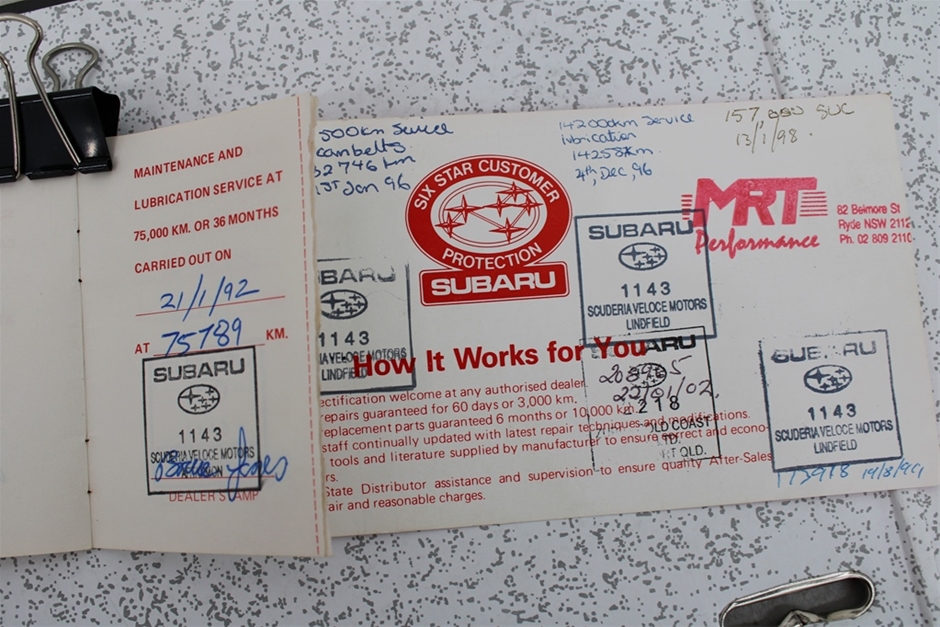 MAINTENANCE AND
LUBRICATION SERVICE AT
75,000 KM. OR 36 MONTHS
CARRIED OUT ON
21/1/92
AT 75789 KM.
SUBARU
1143
SCUDERIA VELOCE MOTORS
DEALER STAMP
500km Service
cambelts
32746 km
1st Jan 96
14200km Service
lubrication
14258km.
4th, Dec, 96
157,000 SVC
13/1/98.
SIX STAR CUSTOMER
PROTECTION
SUBARU
MRT
Performance
82 Belmore St
Ryde NSW 2112
Ph. 02 809 210
UBARU
1143
IA VELOCE MOTORS
LINDFIEL
SUBARU
1143
SCUDERIA VELOCE MOTORS
LINDFIELD
How It Works for You
ectification welcome at any authorised dealer.
epairs guaranteed for 60 days or 3,000 km.
eplacement parts guaranteed 6 months or 10,000 km.
staff continually updated with latest repair techniques and modifications.
tools and literature supplied by manufacturer to ensure correct and econo-
rs.
State Distributor assistance and supervision to ensure quality After-Sales
air and reasonable charges.
ARU
22/01/02
218
OLD COAST
TD.
QLD.
SUBARU
1143
SCUDERIA VELOCE MOTORS
LINDFIELD
173978 19/8/99